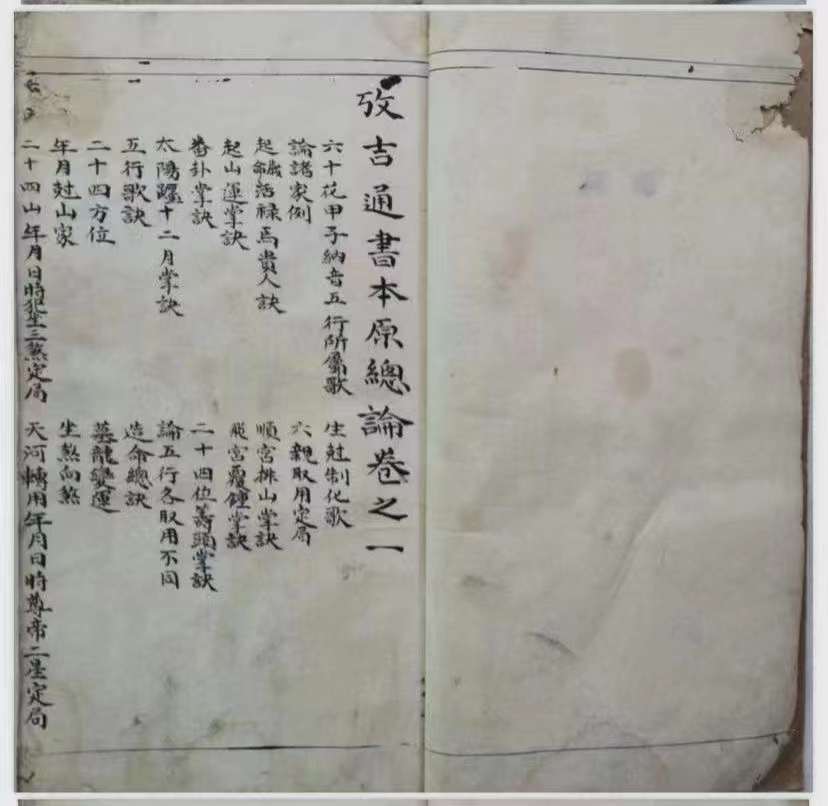 攷吉通書本原總論卷之一
六十花甲子納音五行所屬歌
生尅制化歌
論諸家例
六親取用定局
起祿馬貴人訣
順宮排山掌訣
起山運掌訣
飛宮覆鐘掌訣
番卦掌訣
二十四位籌頭掌訣
太陽躔十二月掌訣
論五行各取用不同
五行歌訣
造命總訣
二十四方位
墓龍變運
年月尅山家
坐煞向煞
二十四山年月日時犯坐三煞定局
天河轉用年月日時尊帝二星定局